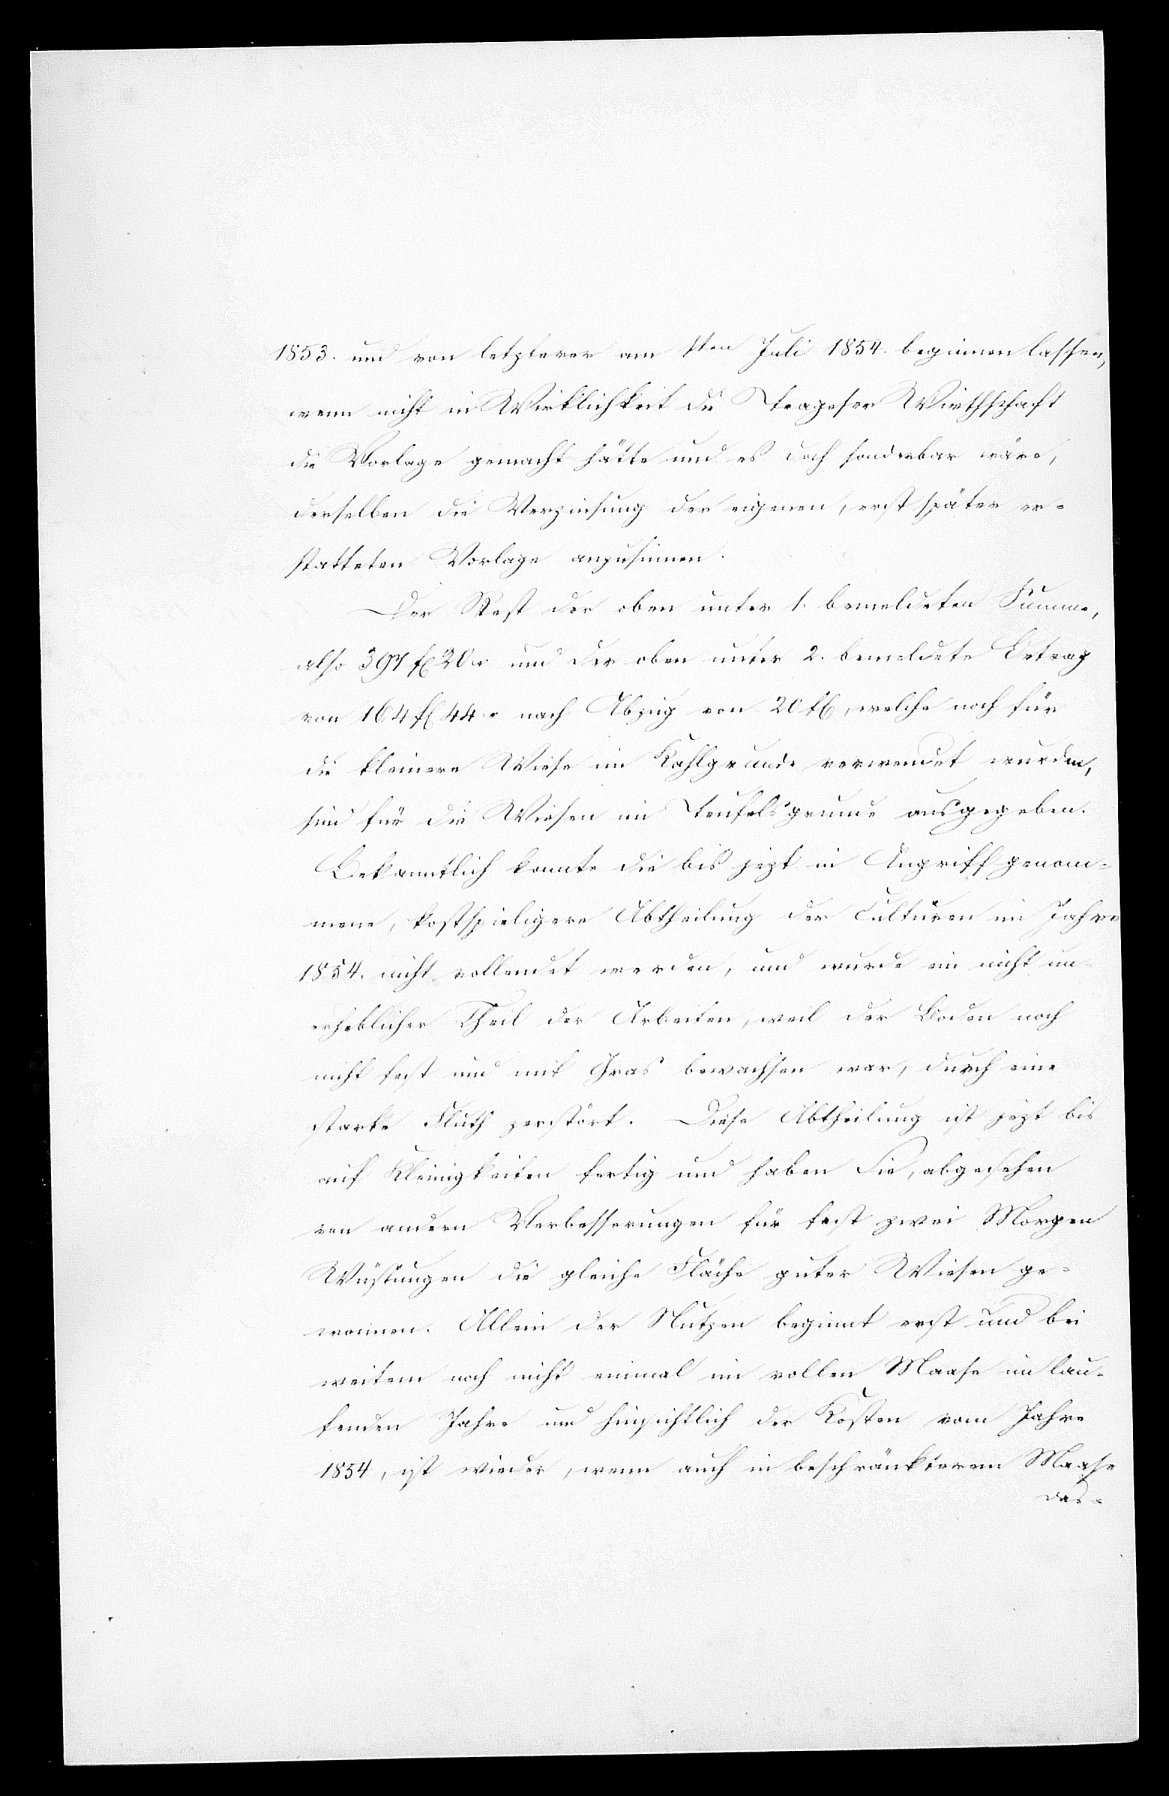 1853. und von letzterer am 1ten Juli 1854. beginnen lassen,
wenn nicht in Wirklichkeit die Trageser Wirthschaft
die Vorlage gemacht hätte und es doch sonderbar wäre,
derselben die Verzinsung der eigenen, erst später er-
statteten Vorlage anzusinnen.
Der Rest der oben unter 1. bemeldeten Summe,
also 397 fl 20 x und der oben unter 2. bemeldete Betrag
von 164 fl 44 x nach Abzug von 20 fl, welche noch für
die kleinere Wiese im Kahlgrunde verwendet wurden,
sind für die Wiesen im Teufelsgrunde ausgegeben.
Bekanntlich konnte die bis jezt in Angriff genom-
mene, kostspieligere Abtheilung der Culturen im Jahre
1854. nicht vollendet werden, und wurde ein nicht un-
erheblicher Theil der Arbeiten, weil der Boden noch
nicht fest und mit Gras bewachsen war, durch eine
starke Fluth zerstört. Diese Abtheilung ist jezt bis
auf Kleinigkeiten fertig und haben Sie, abgesehen
von andern Verbesserungen für fast zwei Morgen
Wüstungen die gleiche Fläche guter Wiesen ge-
wonnen. Allein der Nutzen beginnt erst und bei
weitem noch nicht einmal im vollen Maase im lau-
fenden Jahre und hinsichtlich der Kosten vom Jahre
1854, ist wieder, wenn auch in beschränkterem Maase
das-